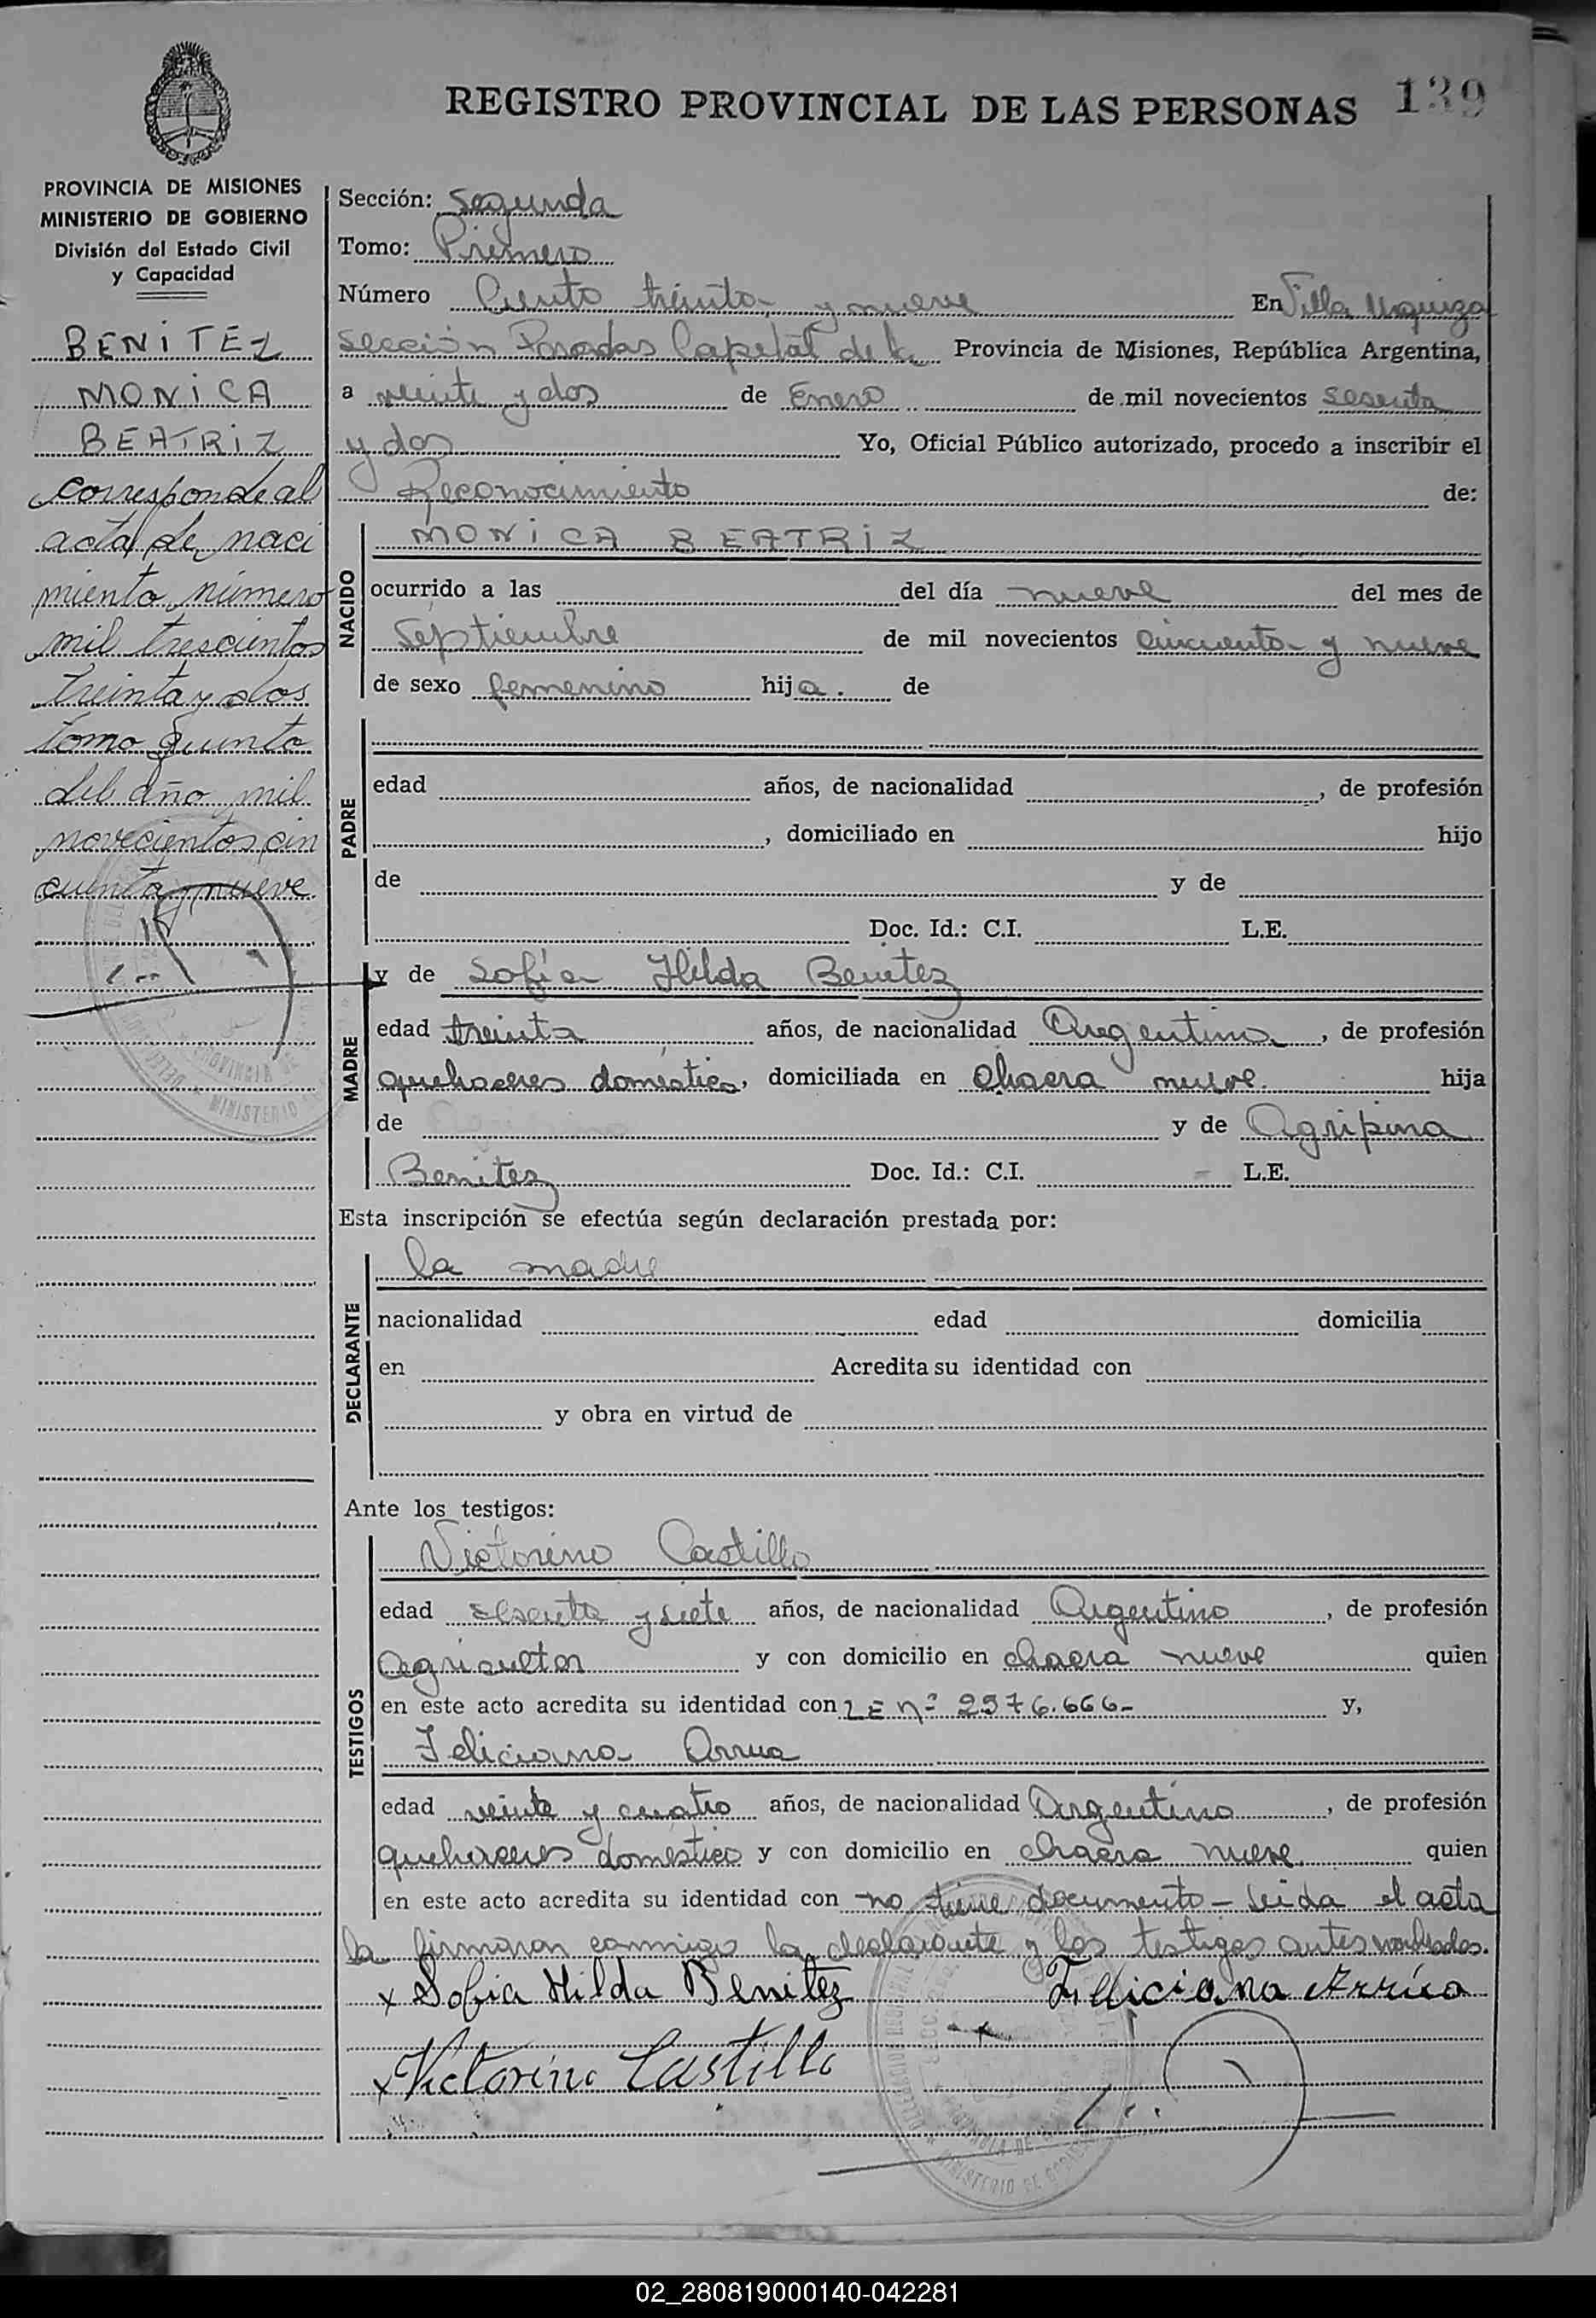 REGISTRO PROVINCIAL DE LAS PERSONAS 139
PROVINCIA DE MISIONES
MINISTERIO DE GOBIERNO
División del Estado Civil
y Capacidad
BENITEZ
MONICA
BEATRIZ
corresponde al
acta de naci
miento número
mil trescientos
treinta y dos
tomo quinto
del año mil
novecientos cin
cuenta y nueve.
Sección: Segunda
Tomo: Primero
Número Ciento treinta y nueve En Villa Urquiza
Sección Posadas Capital de la Provincia de Misiones, República Argentina,
a veinte y dos de Enero de mil novecientos sesenta
y dos Yo, Oficial Público autorizado, procedo a inscribir el
Reconocimiento de:
NACIDO
MONICA BEATRIZ
ocurrido a las del día nueve del mes de
Septiembre de mil novecientos cincuenta y nueve
de sexo femenino hija. de
PADRE
edad años, de nacionalidad , de profesión
, domiciliado en hijo
de y de
Doc. Id.: C.I. L.E.
MADRE
y de Sofia Hilda Benitez
edad treinta años, de nacionalidad Argentina, de profesión
quehaceres domestico, domiciliada en chacra nueve. hija
de y de Agripina
Benitez Doc. Id.: C.I. - L.E.
Esta inscripción se efectúa según declaración prestada por:
DECLARANTE
la madre
nacionalidad edad domicilia
en Acredita su identidad con
y obra en virtud de
Ante los testigos:
TESTIGOS
Victorino Castillo
edad sesenta y siete años, de nacionalidad Argentino, de profesión
agricultor y con domicilio en chacra nueve quien
en este acto acredita su identidad con LE nº 2576.666- y,
Feliciana Arrua
edad veinte y cuatro años, de nacionalidad Argentina, de profesión
quehaceres domestico y con domicilio en chacra nueve. quien
en este acto acredita su identidad con no tiene documento - Leida el acta
la firmaron conmigo la declarante y los testigos antes nombrados.
x Sofia Hilda Benitez Feliciana Arrúa
x Victorino Castillo
02_280819000140-042281